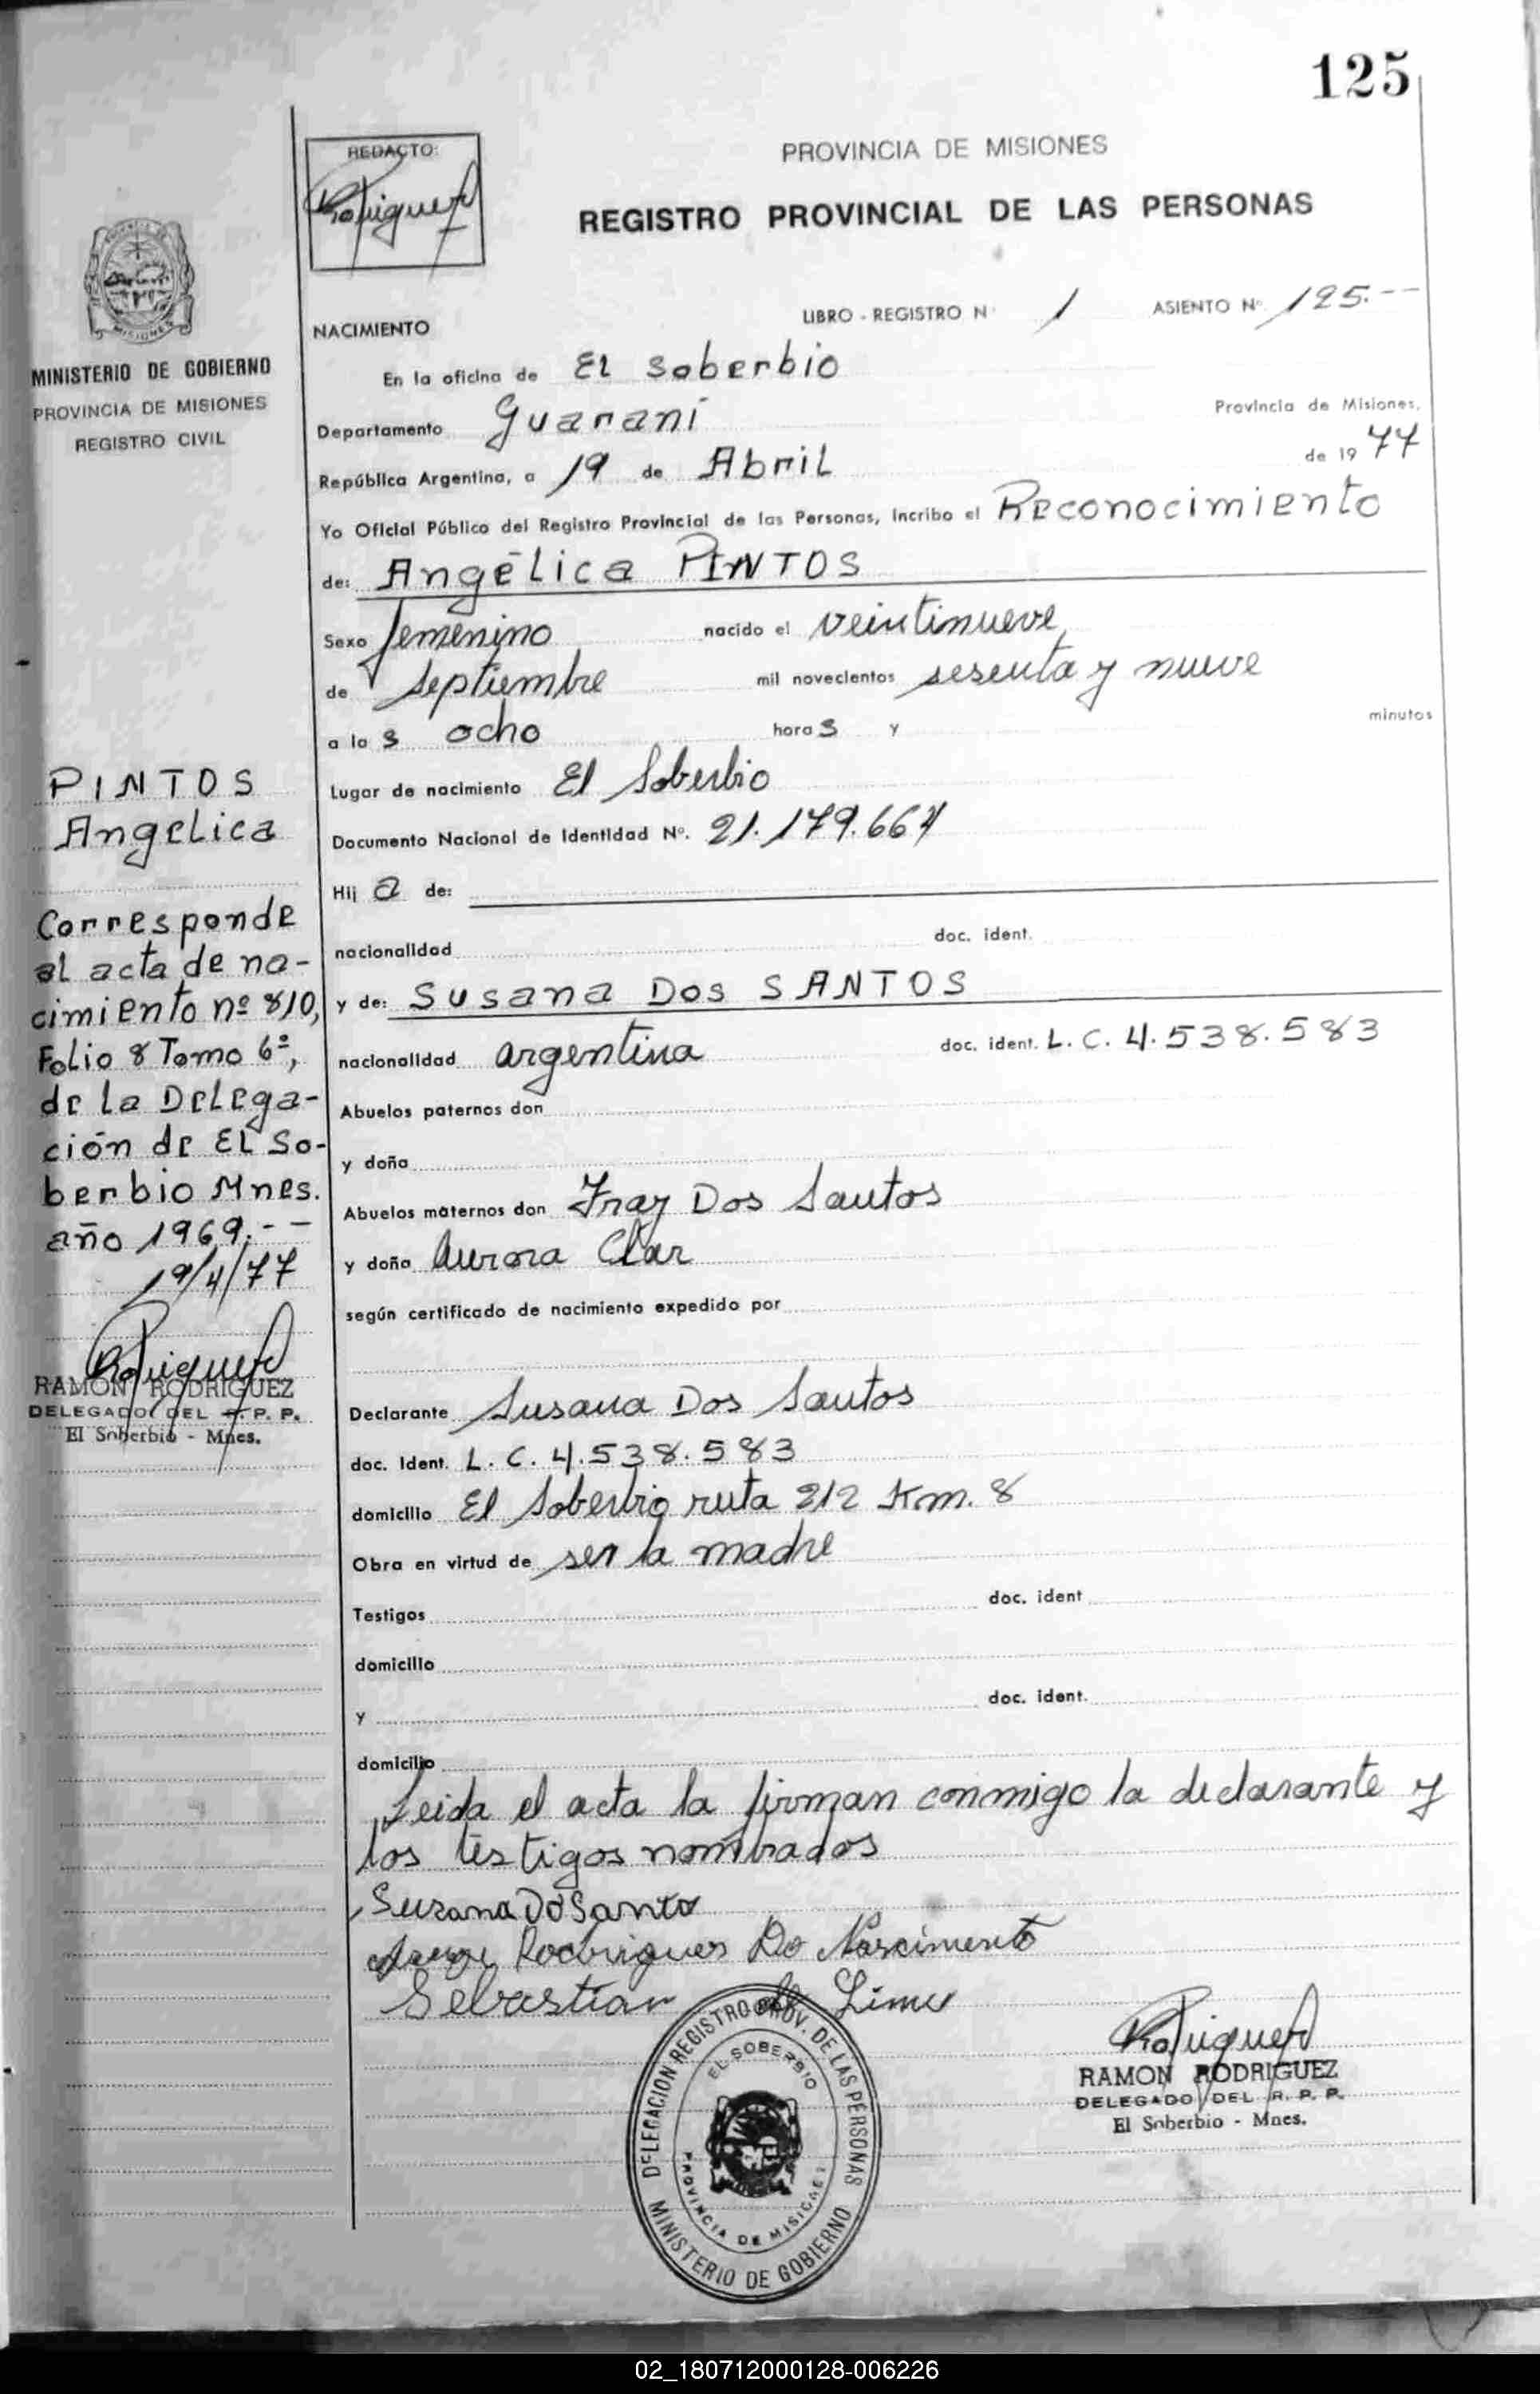 125
REDACTO:
PROVINCIA DE MISIONES
REGISTRO PROVINCIAL DE LAS PERSONAS
MISIONES
MINISTERIO DE GOBIERNO
PROVINCIA DE MISIONES
REGISTRO CIVIL
PINTOS
Angelica
Corresponde
al acta de na-
cimiento nº 810,
Folio 8 Tomo 6º,
de la Delega-
ción de El So-
berbio Mnes.
año 1969.--
19/4/77
RAMON RODRIGUEZ
DELEGADO DEL R. P. P.
El Soberbio - Mnes.
NACIMIENTO
LIBRO - REGISTRO N 1 ASIENTO Nº 125.--
En la oficina de El Soberbio
Departamento Guaraní Provincia de Misiones,
República Argentina, a 19 de Abril de 1977
Yo Oficial Público del Registro Provincial de las Personas, incribo el Reconocimiento
de: Angélica PINTOS
Sexo femenino nacido el veintinueve
de septiembre mil novecientos sesenta y nueve
a las ocho horas y minutos
Lugar de nacimiento El Soberbio
Documento Nacional de Identidad Nº. 21.179.664
Hija de:
nacionalidad doc. ident.
y de: Susana Dos SANTOS
nacionalidad argentina doc. ident. L. C. 4.538.583
Abuelos paternos don
y doña
Abuelos maternos don Dos Santos
y doña Aurora
según certificado de nacimiento expedido por
Declarante Susana Dos Santos
doc. Ident. L. C. 4.538.583
domicilio El Soberbio ruta 212 Km. 8
Obra en virtud de ser la madre
Testigos doc. ident
domicilio
y doc. ident.
domicilio
Leida el acta la firman conmigo la declarante y
los testigos nombrados
Susana Do Santo
Rodrigues Do Nascimento
Sebastian Lima
DELEGACION REGISTRO PROV. DE LAS PERSONAS
EL SOBERBIO
PROVINCIA DE MISIONES
MINISTERIO DE GOBIERNO
RAMON RODRIGUEZ
DELEGADO DEL R. P. P.
El Soberbio - Mnes.
02_180712000128-006226